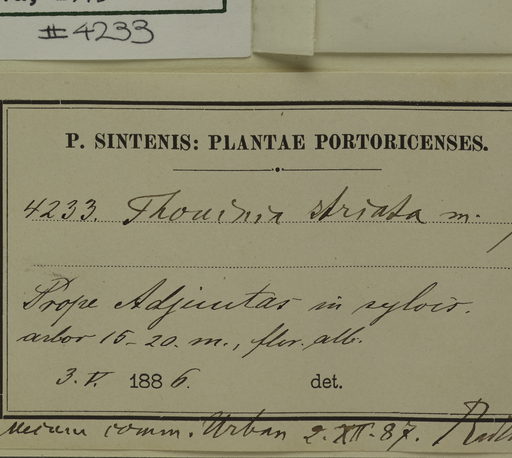 #4233
P. SINTENIS: PLANTAE PORTORICENSES.
4233. Thouinia striata m.
Prope Adjuntas in sylvis.
arbor 15-20. m., flor. alb.
3. V. 1886. det.
mecum comm. Urban 2. XII. 87.